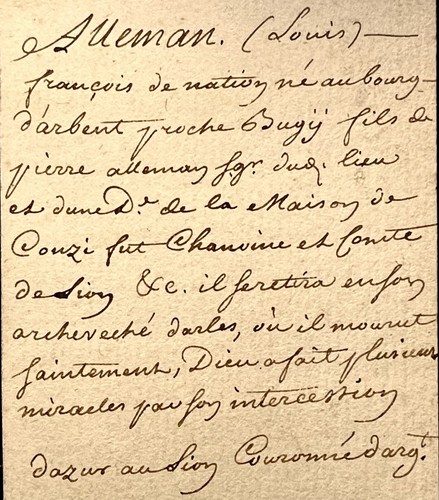 Alleman. (Louis) —
françois de nation né au bourg
d'arbent proche Bugij fils de
pierre alleman sgr. dud. lieu
et dune De. de la Maison de
Couzi fut Chanoine et Comte
de Lion &c. il se retira en son
archeveché darles, où il mourut
saintement, Dieu a fait plusieurs
miracles par son intercession
dazur au Lion Couronné dargt.